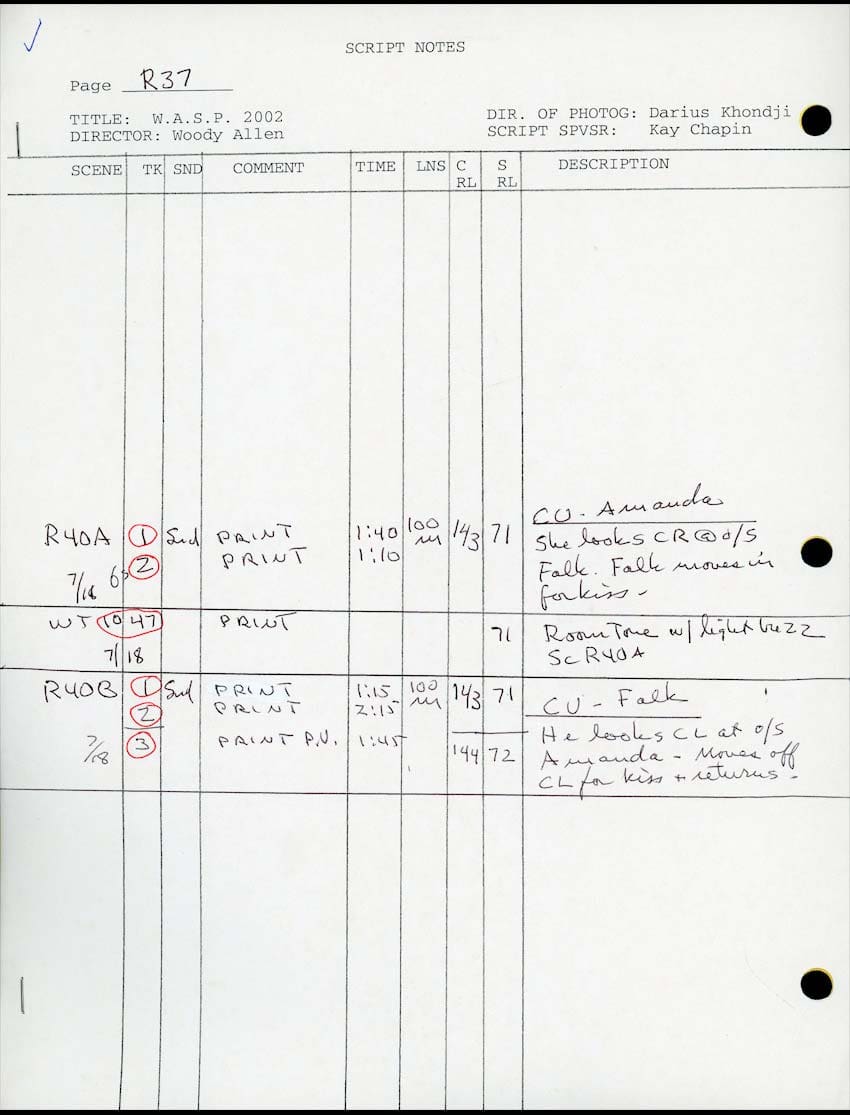 SCRIPT NOTES
Page R37
TITLE: W.A.S.P. 2002 DIR. OF PHOTOG: Darius Khondji
DIRECTOR: Woody Allen SCRIPT SPVSR: Kay Chapin
SCENE TK SND COMMENT TIME LNS C RL S RL DESCRIPTION
CU - Amanda
R40A 1 Snd PRINT 1:40 100 143 71 She looks CR @ o/s
2 PRINT 1:10 Falk. Falk moves in
7/18 for kiss -
WT 1047 PRINT 71 Room Tone w/ light buzz
7/18 Sc R40A
R40B 1 Snd PRINT 1:15 100 143 71 CU - Falk
2 PRINT 2:15
He looks CL at o/s
7/18 3 PRINT P.U. 1:45 144 72 Amanda - Moves off
CL for kiss + returns -